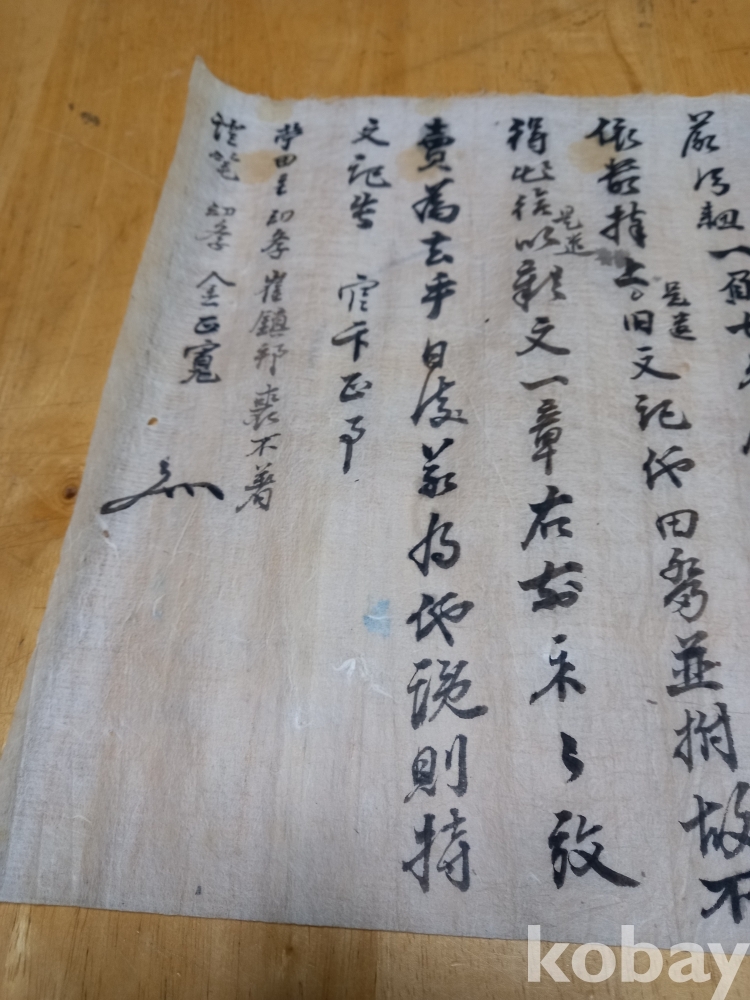 依數捧上是遣旧文記他田畓並拊故不
得出給是遣以新文一章右前永々放
賣爲去乎日後若有他說則持
文記告 官卞正事
田主幼學崔鎭邦喪不着
證筆幼學金正寬
kobay